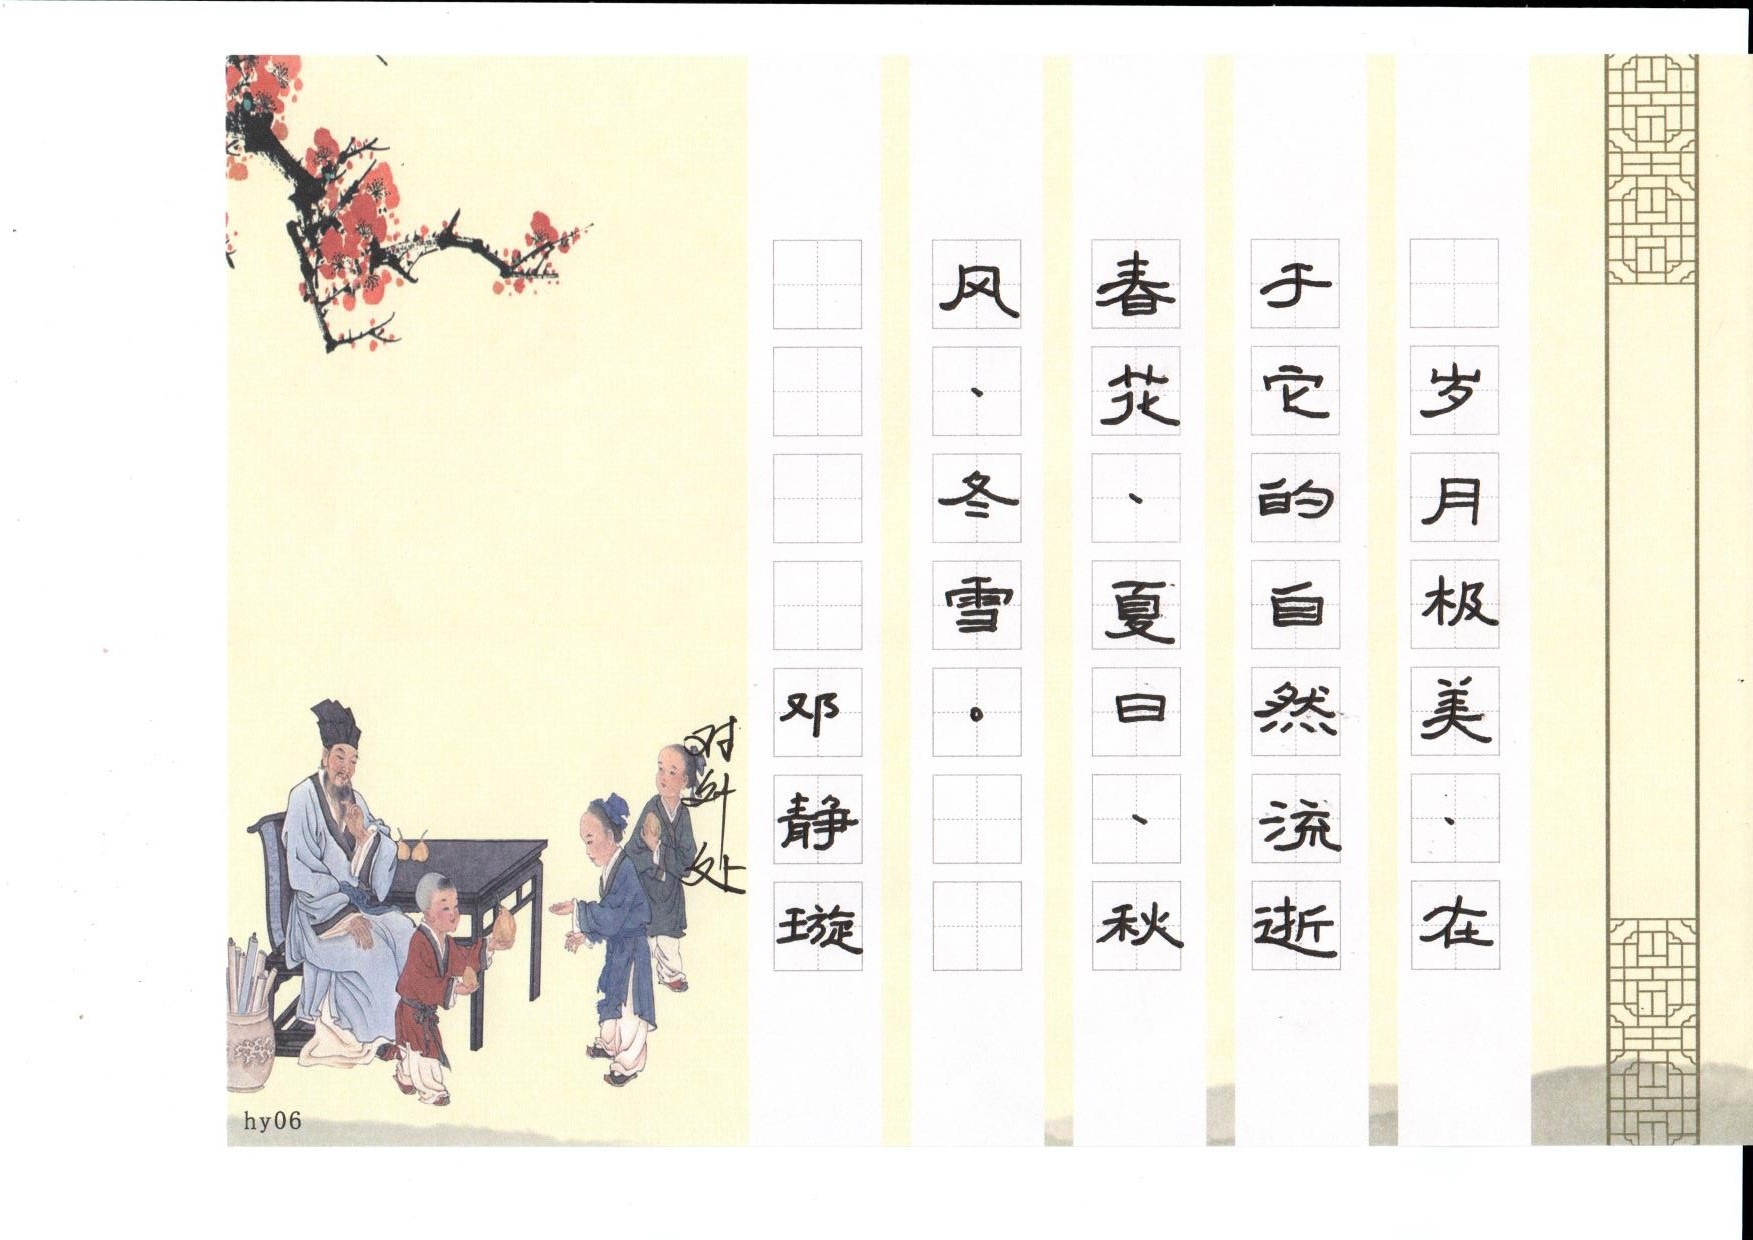 岁月极美、在
于它的自然流逝
春花、夏日、秋
风、冬雪。
邓静璇
hy06